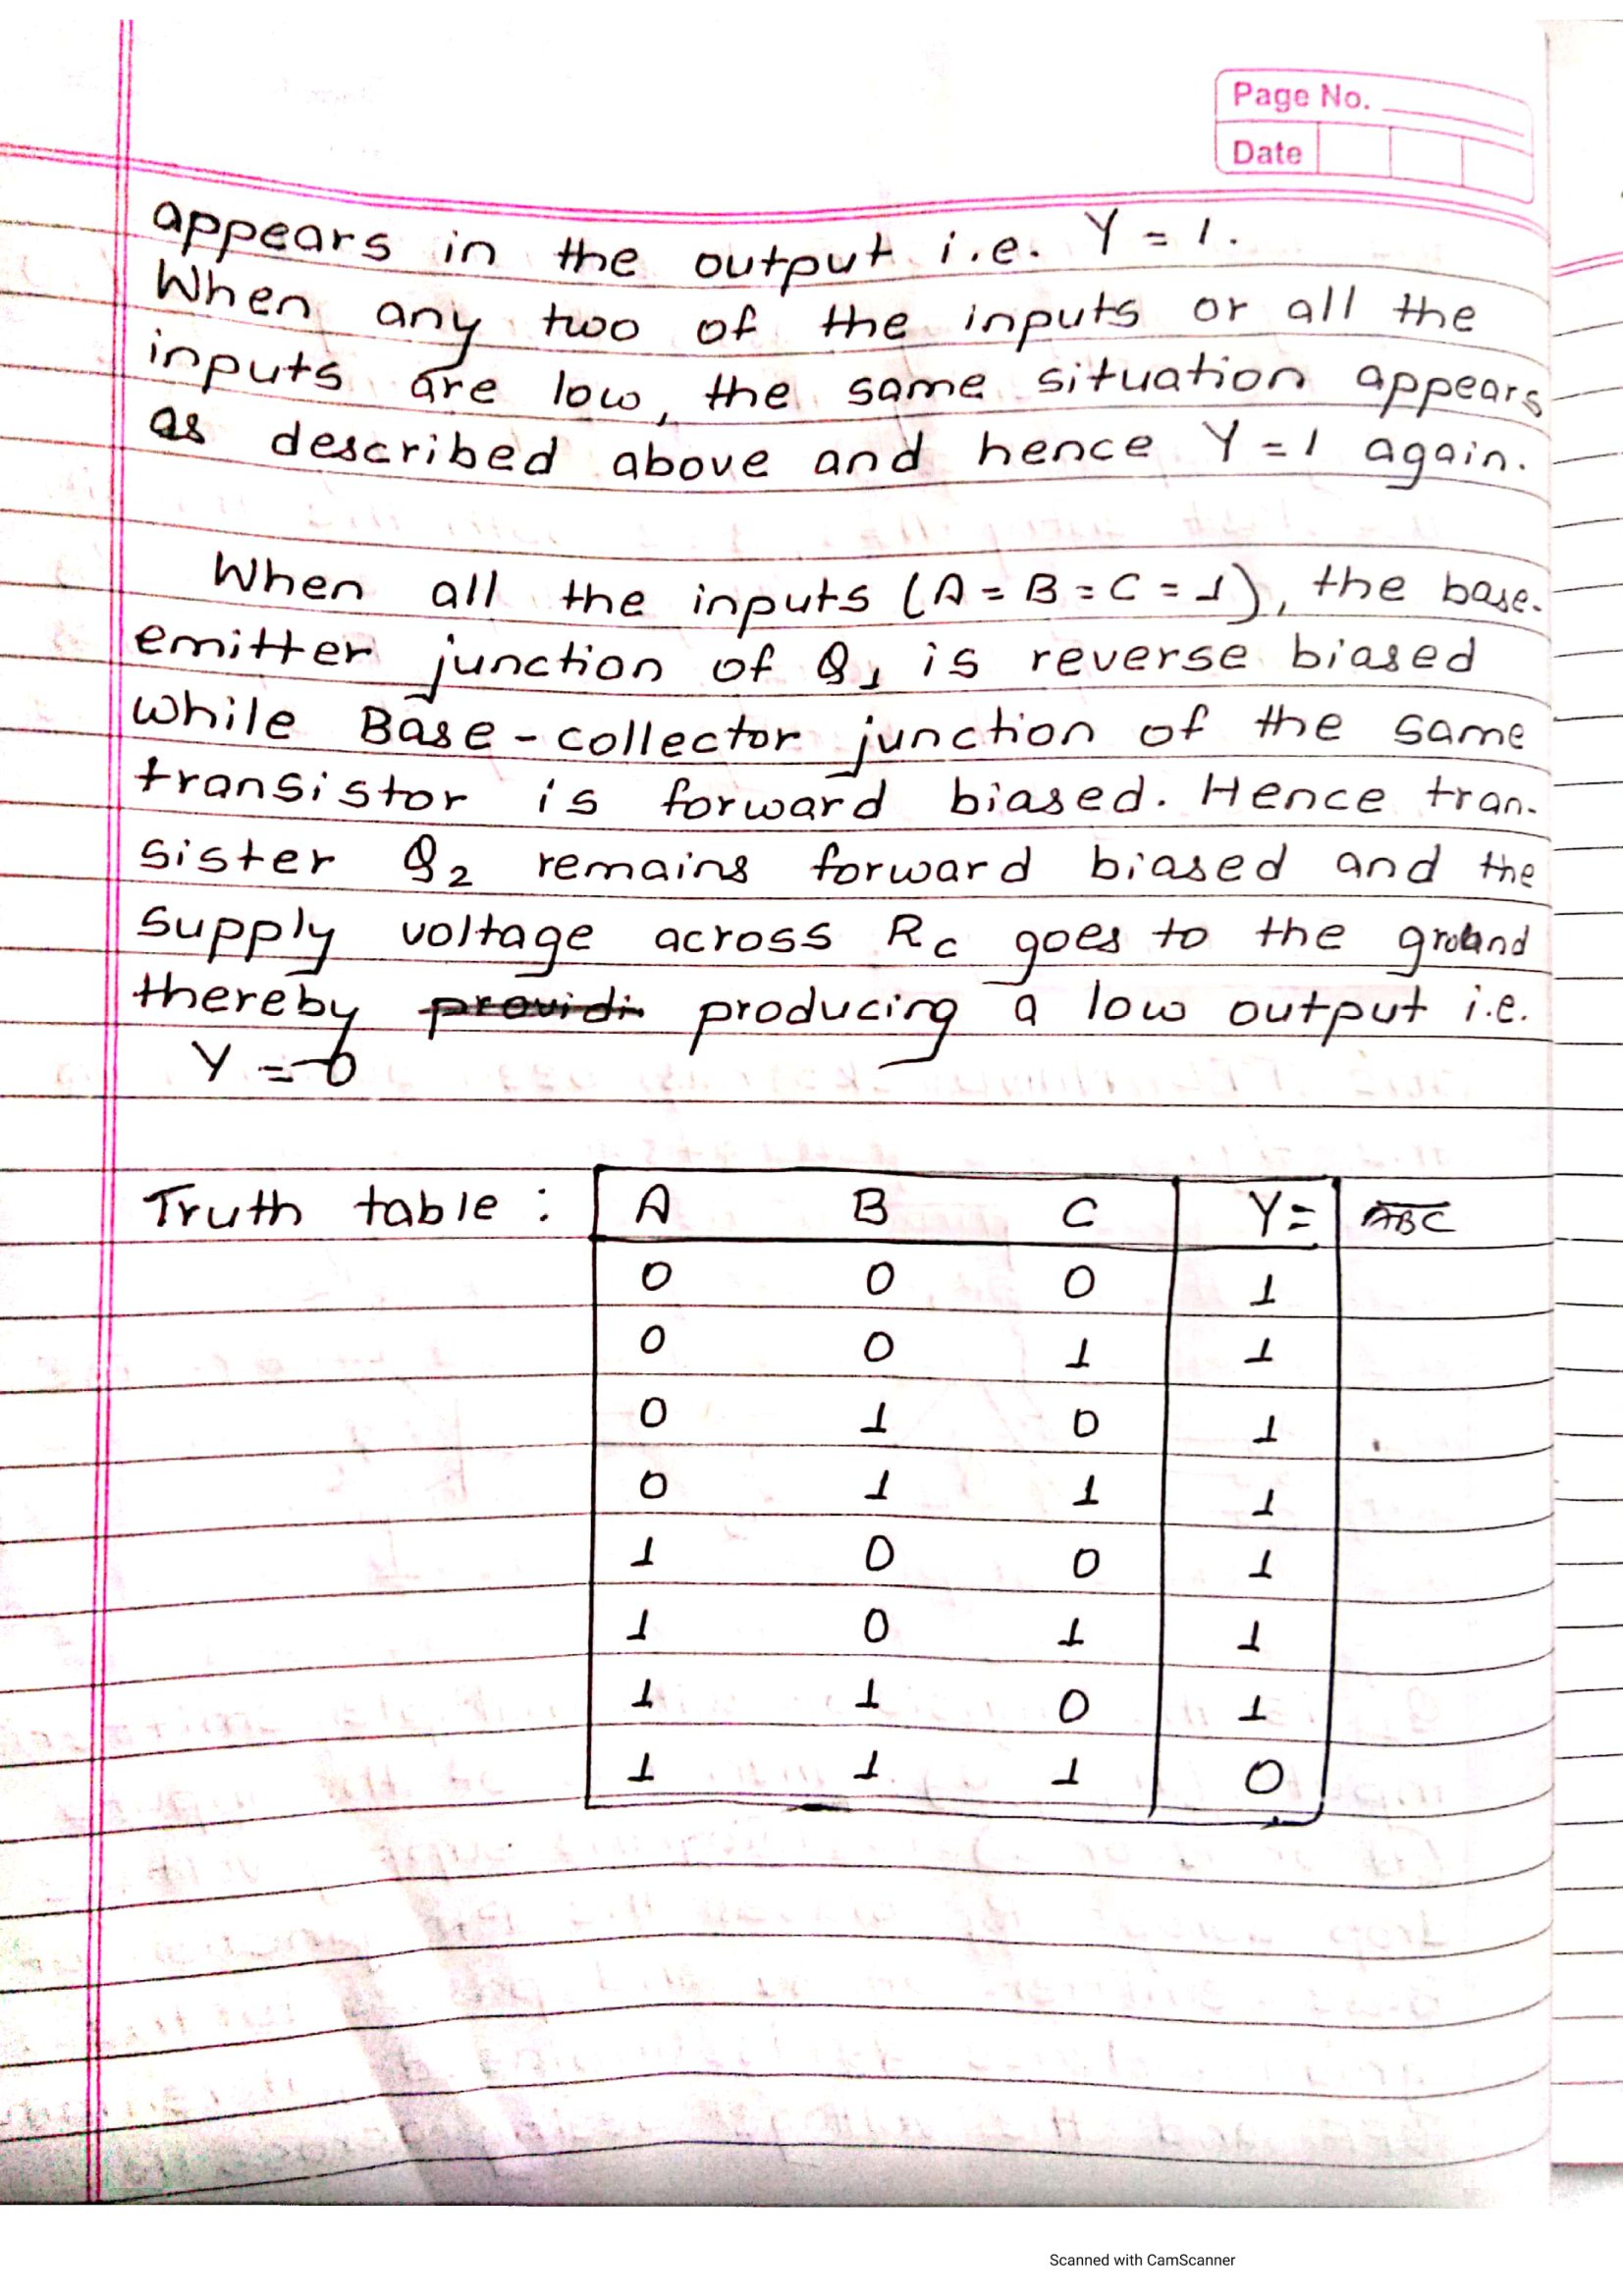 Page No.
Date
appears in the output i.e. Y = 1.
When any two of the inputs or all the
inputs are low, the same situation appears
as described above and hence Y = 1 again.
When all the inputs (A = B = C = 1), the base-
emitter junction of Q1 is reverse biased
while Base-collector junction of the same
transistor is forward biased. Hence tran-
sister Q2 remains forward biased and the
supply voltage across Rc goes to the ground
thereby providi producing a low output i.e.
Y = 0
Truth table : A B C Y = A̅B̅C̅
0 0 0 1
0 0 1 1
0 1 0 1
0 1 1 1
1 0 0 1
1 0 1 1
1 1 0 1
1 1 1 0
Scanned with CamScanner